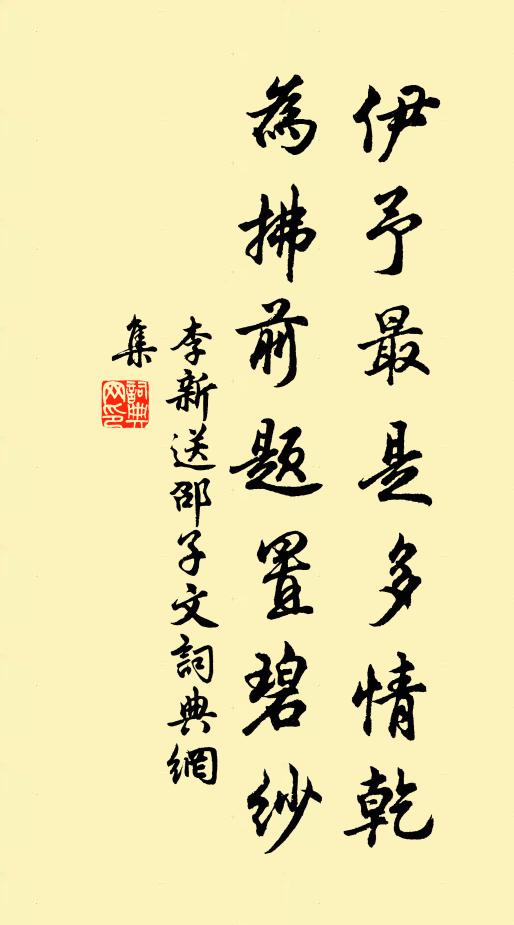 伊予最是多情乾
為拂前題置碧紗
李新送邵子文詞典網
集
詞典
网印